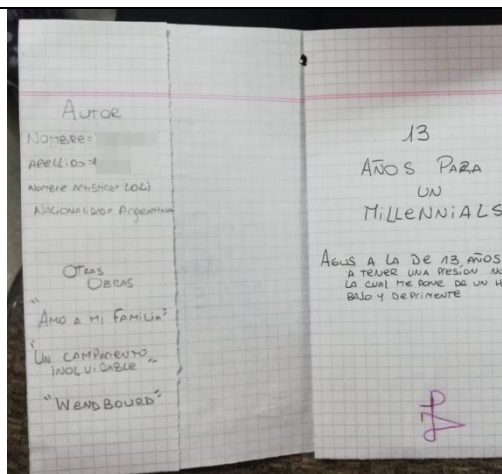 AUTOR
NOMBRE=
APELLIDO=
NOMBRE ARTISTICO= LOLI
NACIONALIDAD= Argentina
OTRAS
OBRAS
"AMO A MI FAMILIA"
"UN CAMPAMENTO
INOLVIDABLE"
"WENDBOURD"
13
AÑOS PARA
UN
MILLENNIALS
AGUS A LA DE 13 AÑOS
A TENER UNA PRESION
LA CUAL ME PONE DE UN
BAJO Y DEPRIMENTE